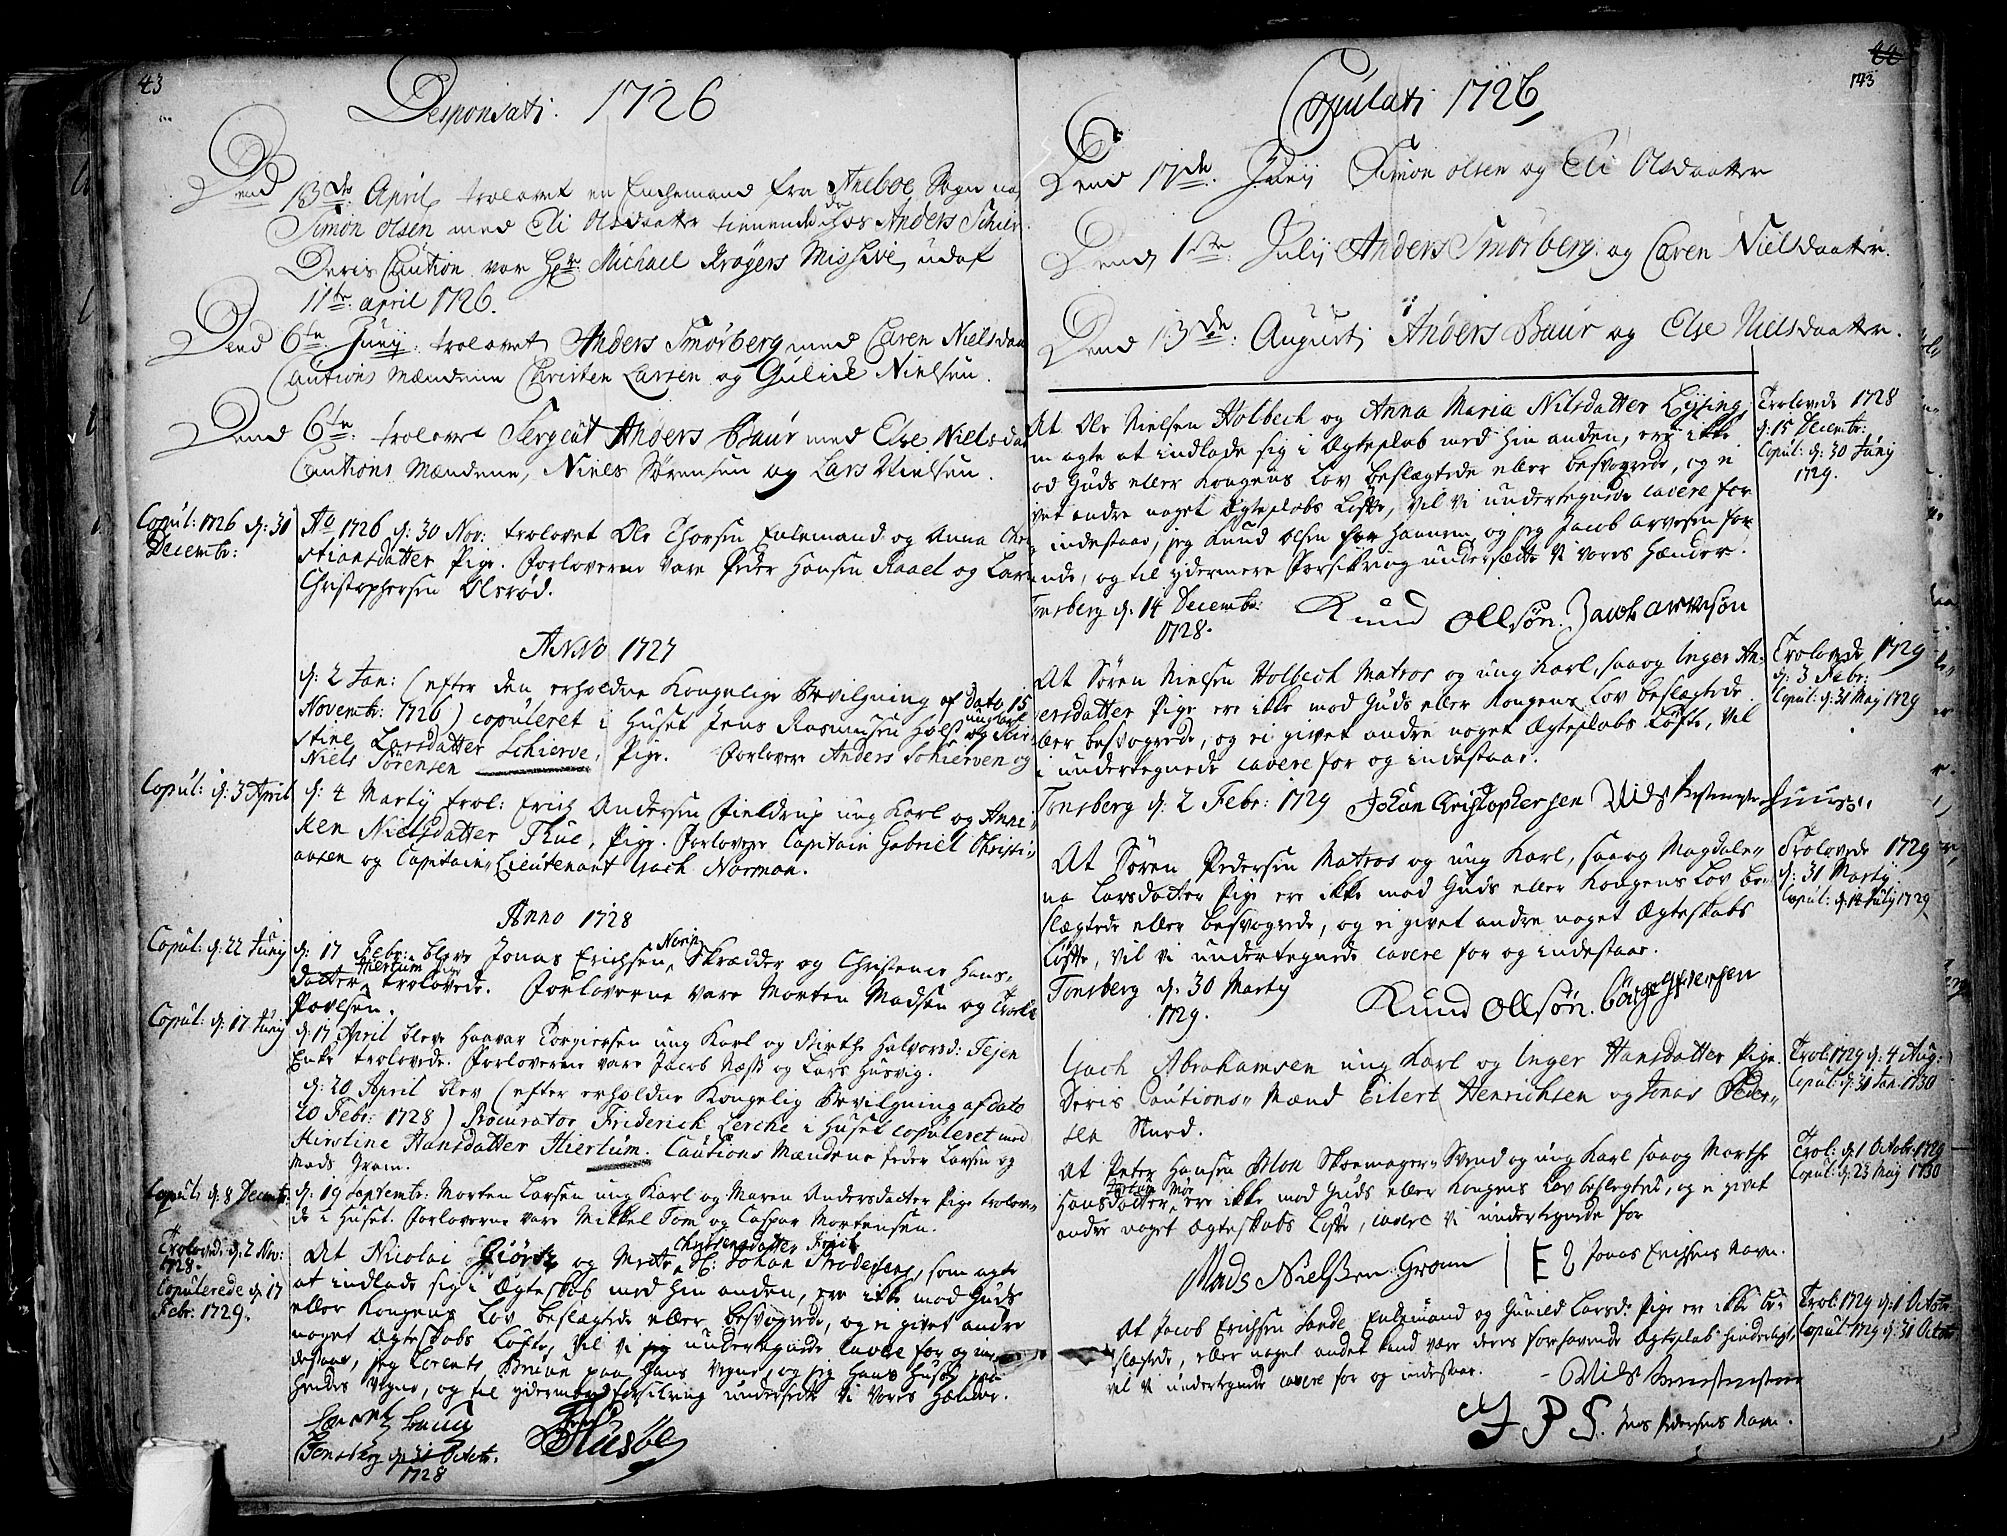 43
Desponsati. 1726
Dend 13de April trolovet en Enchemand fra Aneboe Sogn na
Simon Olsen med Eli Olsdaatter tienende hos Anders Schier
Deris Caution var Hr Michael Krøgers Missive udaf
11te april 1726.
Dend 6te Junij trolovet Anders Smørberg med Caren Nielsdaa
Cautions Mændene Christen Larsen og Gulich Nielsen.
Dend 6te trolovet Sergeüt Anders Baur med Else Nielsdat
Cautions Mændene, Niels Sørensen og Lars Nielsen.
Copul: 1726 d: 31
Decembr:
Ao 1726 d: 30 Nov: trolovet Ole Thorsen Enkemand og Anna Chri
stiansdatter Pige. Forloverne vare Peder Hansen Raael og Lars
Christophersen Olsrød.
Anno 1727
d: 2 Jan: (efter den erholdne Kongelige Bevilgning af Dato 15
Novembr: 1726) copuleret i Huset Jens Rasmusen Holst ungkarl og Kir
stine Larsdatter Schierve, Pige. Forlovere Anders Schierven og
Niels Sørensen
Copul: d: 3 April
d: 4 Martij trol: Erich Andersen Fieldrup ung Karl og Anni-
ken Nielsdatter Thue, Pige. Forlovere Capitain Gabriel Christi-
ansen og Capitain Lieutenant Isach Norman.
Anno 1728
Copul: d: 22 Junij
d: 17 Febr: bleve Jonas Erichsen Norip Skrædder og Christence Hans-
datter Hiertum Pige trolovede. Forloverne vare Morten Madsen og Troels
Povelsen.
Copul: d: 17 Junij
d: 17 April bleve Haavar Torgiersen ung Karl og Birthe Halvorsd: Tejen
Enke trolovede. Forloverne vare Jacob Næss og Lars Husvig.
d: 20 April blev (efter erholdne Kongelig Bevilgning af dato
20 Febr: 1728) Procurator Friderich Lerche i Huset copuleret med
Kirstine Hansdatter Hiertum. Cautions Mændene Peder Larsen og
Mads Gram.
Copul: d: 8 Decembr:
d: 19 Septembr: Morten Larsen ung Karl og Maren Andersdatter Pige trolove-
de i Huset. Forloverne vare Mikkel Tom og Caspar Mortensen.
Trolovede d: 2 Nov:
1728.
Copulerede d: 17
Febr: 1729.
At Nicolai Giørtz og Mette Christensdatter Sl: Johan Strodes, som agte
at indlade sig i Ægteskab med hin anden, ere ikke mod Guds
eller Kongens Lov beslægtede eller besvogrede, og ei givet andre
noget Ægteskabs Løfte, Vil Vi undertegnede cavere for og in-
destaae, jeg Lorents Bruun paa hans Vegne, og jeg Hans Husøe paa
hendes Vegne, og til ydermere forsikring undersette Vi Vores Hænder.
Lorentz Bruun
Husøe
Tonsberg d: 31 Octobr:
1728
44
143
Copulati 1726
Dend 17de Junij Simon Olsen og Eli Olsdaatter
Dend 1ste Julij Anders Smørberg og Caren Nielsdaatter.
Dend 13de August Anders Baur og Else Nielsdaatter.
At Ole Nielsen Holbech og Anna Maria Nilsdatter Lysing
m agte at indlade sig i Ægteskab med hin anden, ere ikke
od Guds eller Kongens Lov beslægtede eller besvogrede, og ei
vet andre noget Ægteskabs Løfte, Vil Vi undertegnede cavere for
indestaae, jeg Knud Olsen for Hannem og jeg Jacob Arvesen for
nde, og til ydermere Forsikring undersætte Vi Vores Hænder.
Tonsberg d: 14 Decembr:
1728.
Knud Ollsøn. Jacob Arvesøn
Trolovede 1728
d: 15 Decembr:
Copul: d: 30 Junij
1729.
At Søren Nielsen Holbech Matros og ung Karl, saa og Inger An-
ersdatter Pige ere ikke mod Guds eller Kongens Lov beslægtede
ler besvogrede, og ei givet andre noget Ægteskabs Løfte, Vil
i undertegnede cavere for og indestaae.
Tonsberg d: 2 Febr: 1729 Johan Christophersen
Trolovede 1729
d: 3 Febr:
Copul: d: 31 Maj 1729
At Søren Pedersen Matros og ung Karl, saa og Magdale-
na Larsdatter Pige ere ikke mod Guds eller Kongens Lov be-
slægtede eller besvogrede, og ei givet andre noget Ægteskabs
Løfte, vil vi undertegnede cavere for og indestaae.
Tonsberg d: 30 Martij
1729.
Knud Ollsøn.
Trolovede 1729
d: 31 Martij
Copul: d: 14 Julij 1729
Isach Abrahamsen ung Karl og Inger Hansdatter Pige.
Deris Cautions Mænd Eilert Henrichsen og Jonas Peder-
sen Stued.
Trol: 1729 d: 4 Aug:
Copul: d: 31 Jan: 1730
At Peter Hansen Blok Skomager Svend og ung Karl saa og Marthe
Hansdatter ere ikke mod Guds eller Kongens Lov beslægtede, og ei givet
andre noget Ægteskabs Løfte, cavere Vi undertegnede for
Mads Nielssen Gram | E Jonas Erichsens Navn.
Trol: d: 1 Octobr: 1729
Copul: d: 23 Maj 1730
At Jacob Erichsen Sande, Enkemand og Gunild Larsd: Pige ere ikke be-
slægtede, eller noget andet kand være deres forehavende Ægteskab hinderligt,
vil vi undertegnede cavere for og indestaae.
J P S. Jens Pedersens Navn.
Trol: 1729 d: 1 Octobr:
Copul: 1729 d: 31 Octobr: